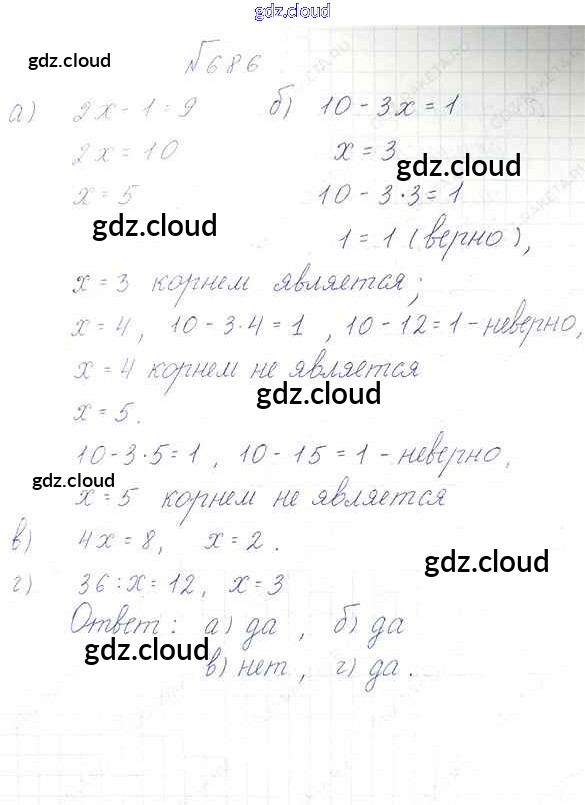 gdz.cloud
gdz.cloud
№686
а) 2x - 1 = 9 б) 10 - 3x = 1
2x = 10 x = 3
gdz.cloud
x = 5 10 - 3·3 = 1
gdz.cloud
1 = 1 (верно),
x = 3 корнем является;
x = 4, 10 - 3·4 = 1, 10 - 12 = 1 - неверно,
x = 4 корнем не является
gdz.cloud
x = 5.
10 - 3·5 = 1, 10 - 15 = 1 - неверно,
gdz.cloud
x = 5 корнем не является
в) 4x = 8, x = 2.
gdz.cloud
г) 36 : x = 12, x = 3
Ответ: а) да, б) да
gdz.cloud
в) нет, г) да.